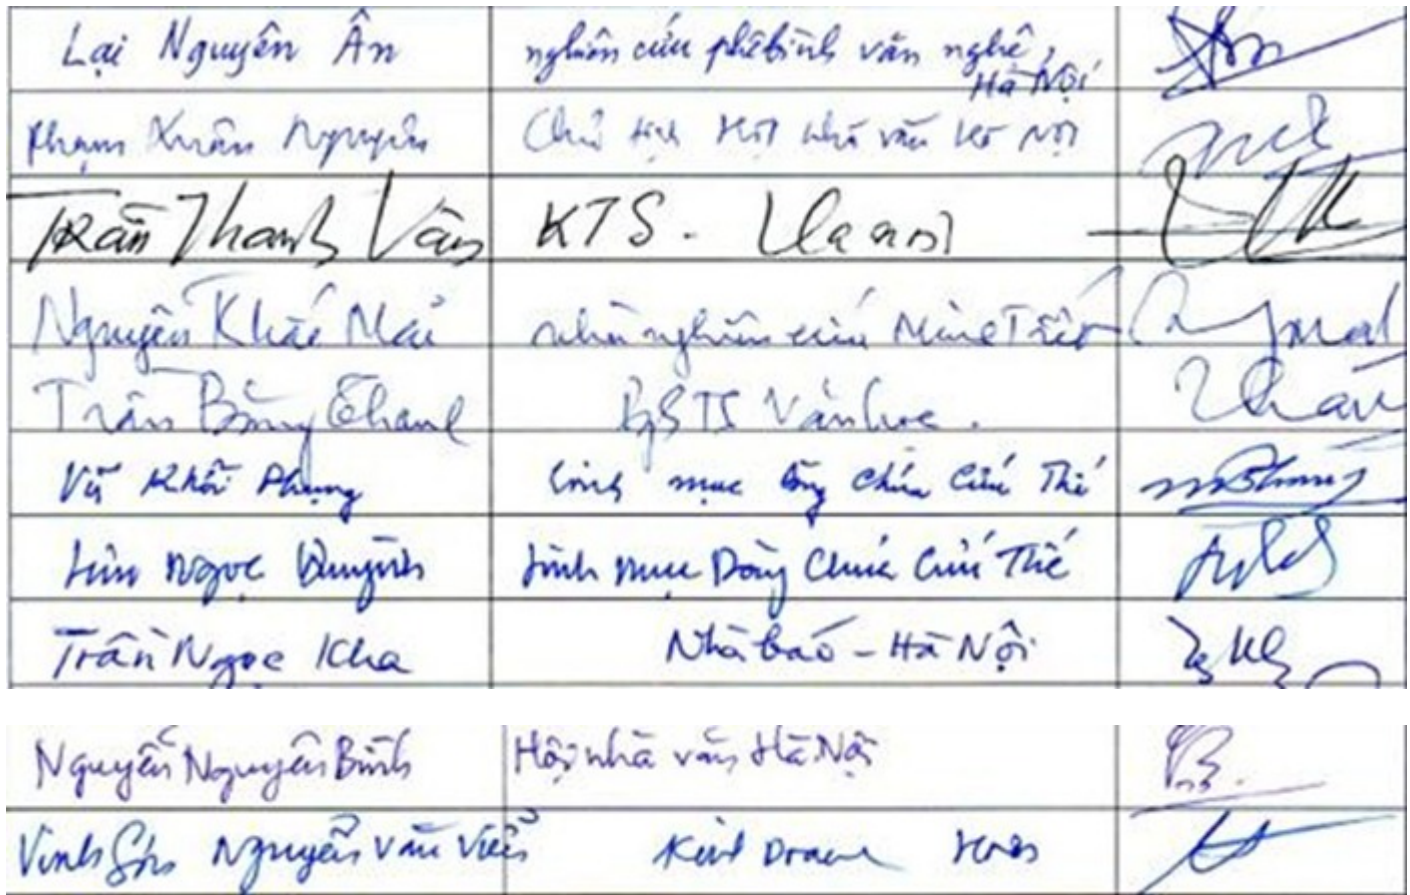 Lại Nguyên Ân nghiên cứu phê bình văn nghệ, Hà Nội
Phạm Xuân Nguyên Chủ tịch Hội nhà văn Hà Nội
Trần Thanh Vân KTS. Hanoi
Nguyễn Khắc Mai nhà nghiên cứu Minh Triết
Trần Băng Thanh PGSTS Văn học.
Vũ Khởi Phụng linh mục Dòng Chúa Cứu Thế
Lưu Ngọc Quỳnh linh mục Dòng Chúa Cứu Thế
Trần Ngọc Kha Nhà báo - Hà Nội
Nguyễn Nguyên Bình Hội nhà văn Hà Nội
Nguyễn Văn Viễn Kinh Doanh